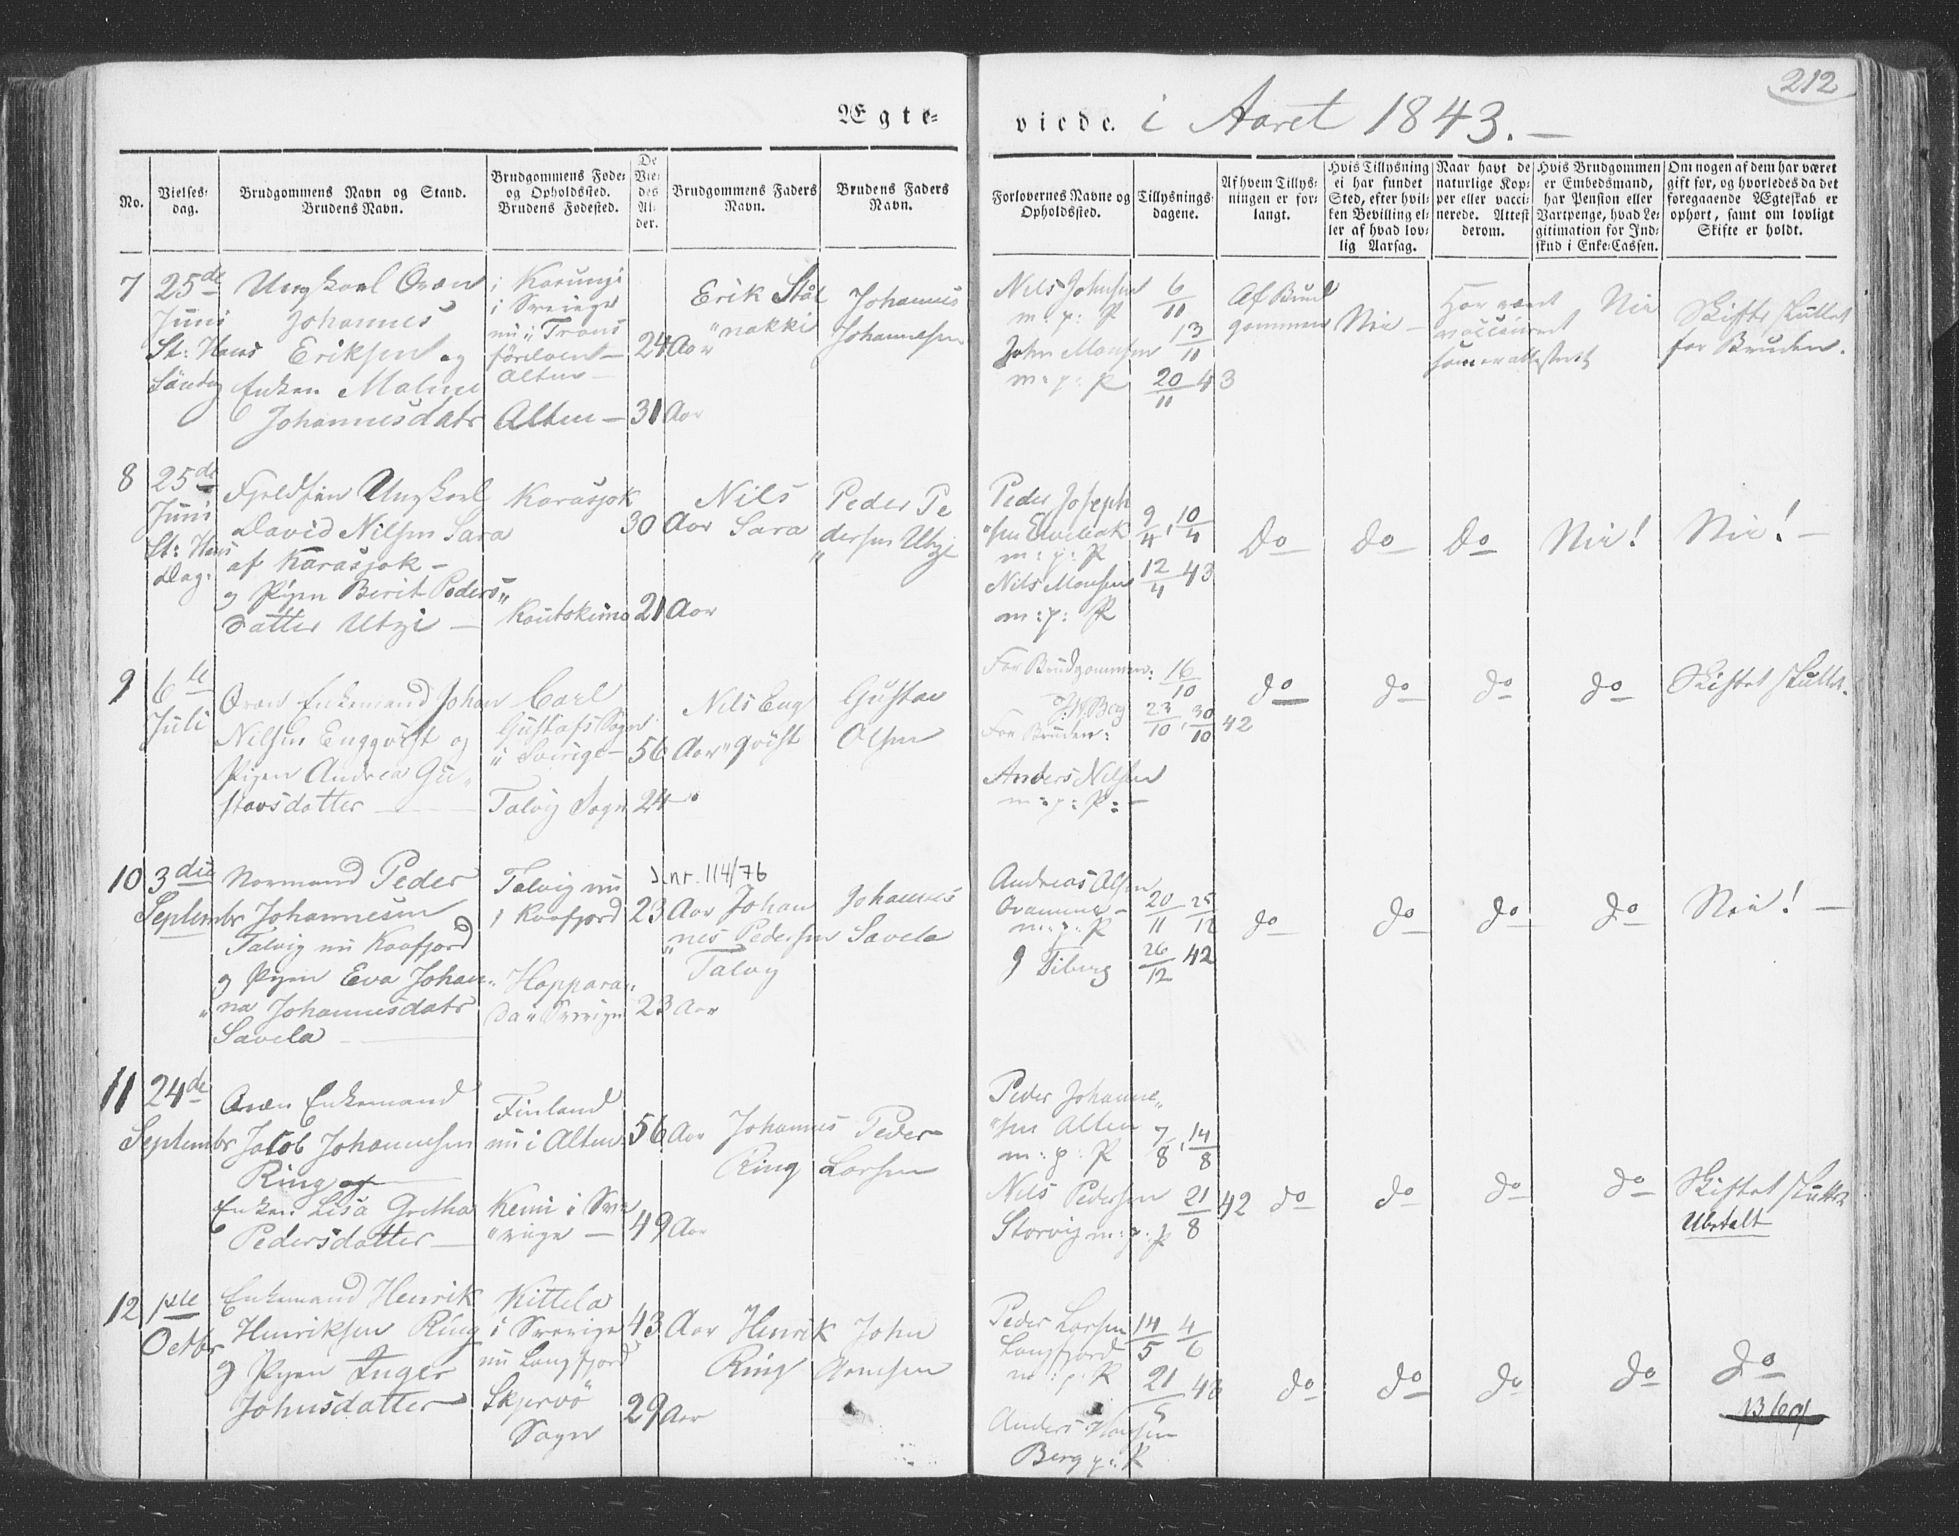 212
Ægte- viede. i Aaret 1843. —
No.
Vielses-
dag.
Brudgommens Navn og Stand.
Brudens Navn.
Brudgommens Føde-
og Opholdssted.
Brudens Fødested.
De
Vie-
des
Al-
der.
Brudgommens Faders
Navn.
Brudens Faders
Navn.
Forlovernes Navne og
Opholdssted.
Tillysnings-
dagene.
Af hvem Tillys-
ningen er for-
langt.
Hvis Tillysning
ei har fundet
Sted, efter hvil-
ken Bevilling el-
ler af hvad lov-
lig Aarsag.
Naar havt de
naturlige Kop-
per eller vacci-
nerede. Attest
derom.
Hvis Brudgommen
er Embedsmand,
har Pension eller
Vartpenge, hvad Le-
gitimation for Ind-
skud i Enke-Cassen.
Om nogen af dem har været
gift før, og hvorledes da det
foregaaende Ægteskab er
ophørt, samt om lovligt
Skifte er holdt.
7
25de
Juni
St: Hans
Søndag
Ungkarl Qvæn
Johannes
Eriksen og
Enken Malene
Johannesdatr
i Karungi
i Sverige
nu i Trans
Alten —
Alten —
24 Aar
31 Aar
Erik Stål
"nakki
Johannes
Johannesen
Nils Johnsen
m: p: P
John Monsen
m: p: P
6/11
13/11
20/11 43
Af Brud
gommen
Nei —
Har været
vaccineret
som er attesteret
Nei
Skifte sluttet
for Bruden.
8
25de
Juni
St: Hans
Dag.
Fjeldfin Ungkarl
David Nilsen Sara
af Karasjok —
og Pigen Berit Peders"
datter Utzi —
Karasjok
Koutokeino
30 Aar
21 Aar
Nils
Sara
Peder Pe
"dersen Utzi
Peder Joseph
"sen
m: p: P
Nils Monsen
m: p: P
9/4, 10/4
12/4 43
Do
Do
Do
Nei!
Nei! —
9
6te
Juli
Qvæn Enkemand Johan
Nilsen Engqvist og
Pigen Andrea Gu"
stavsdatter —
Carl
Gustafs Sogn
i Sverige —
Talvig Sogn
56 Aar
24 —
Nils Eng
"qvist
Gustav
Olsen
For Brudgommen:
Berg
For Bruden:
Anders Nilsen
m: p: P: —
16/10
23/10, 30/10 42
do
do
do
do
Skiftet sluttet.
10
3die
Septembr
Normand Peder
Johannesen
Talvig nu Kaafjord
og Pigen Eva Johan"
"na Johannesdatr
Savela —
Talvig nu
i Kaafjord
Happaran"
da i Sverige
J.nr. 114/76
23 Aar
23 Aar
Johan
"nes Pedersen
Talvig
Johannes
Savela
Andreas Olsen
m: p: P
og Tiberg
20/11 25/12
26/12 42
do
do
do
do
Nei! —
11
24de
Septembr
Qvæn Enkemand
Jacob Johannesen
Ring og
Enken Lisa Gretha
Pedersdatter —
Finland
nu i Alten
Kemi i Sve
"rige —
56 Aar
49 Aar
Johannes
Ring
Peder
Larsen
Peder Johanne"
"sen Alten
m: p: P
Nils Pedersen
Storvig m: p: P
7/8, 14/8
21/8 42
do
do
do
do
Skiftet sluttet
Ubetalt
12
1ste
Octbr
Enkemand Henrik
Henriksen Ring
og Pigen Inger
Johnsdatter
Kittela
i Sverige
nu Langfjord
Skjervø
Sogn
43 Aar
29 Aar
Henrik
Ring
John
Arnesen
Peder Larsen
Langfjord
m: p: P
Anders Hansen
Berg p: P
14/5 4/6
21/5 43
do
do
do
do
do